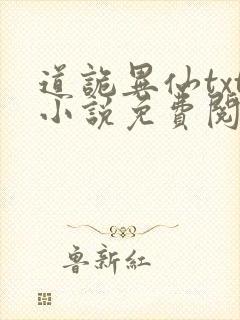 道詭異仙txt
小說免費閱
魯新紅